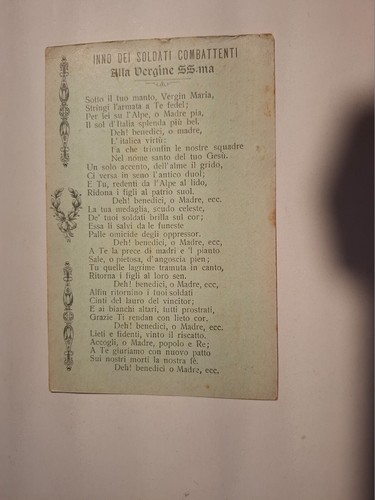 INNO DEI SOLDATI COMBATTENTI
Alla Vergine SS.ma
Sotto il tuo manto, Vergin Maria,
Stringi l'armata a Te fedel;
Per lei su l'Alpe, o Madre pia,
Il sol d'Italia splenda più bel.
Deh! benedici, o madre,
L'italica virtù:
Fa che trionfin le nostre squadre
Nel nome santo del tuo Gesù.
Un solo accento, dell'alme il grido,
Ci versa in seno l'antico duol;
E Tu, redenti da l'Alpe al lido,
Ridona i figli al patrio suol.
Deh! benedici, o Madre, ecc.
La tua medaglia, scudo celeste,
De' tuoi soldati brilla sul cor;
Essa li salvi da le funeste
Palle omicide degli oppressor.
Deh! benedici, o Madre, ecc,
A Te la prece di madri e 'l pianto
Sale, o pietosa, d'angoscia pien;
Tu quelle lagrime tramuta in canto,
Ritorna i figli al loro sen.
Deh! benedici, o Madre, ecc,
Alfin ritornino i tuoi soldati
Cinti del lauro del vincitor;
E ai bianchi altari, tutti prostrati,
Grazie Ti rendan con lieto cor.
Deh! benedici, o Madre, ecc.
Lieti e fidenti, vinto il riscatto.
Accogli, o Madre, popolo e Re;
A Te giuriamo con nuovo patto
Sui nostri morti la nostra fè.
Deh! benedici, o Madre, ecc.